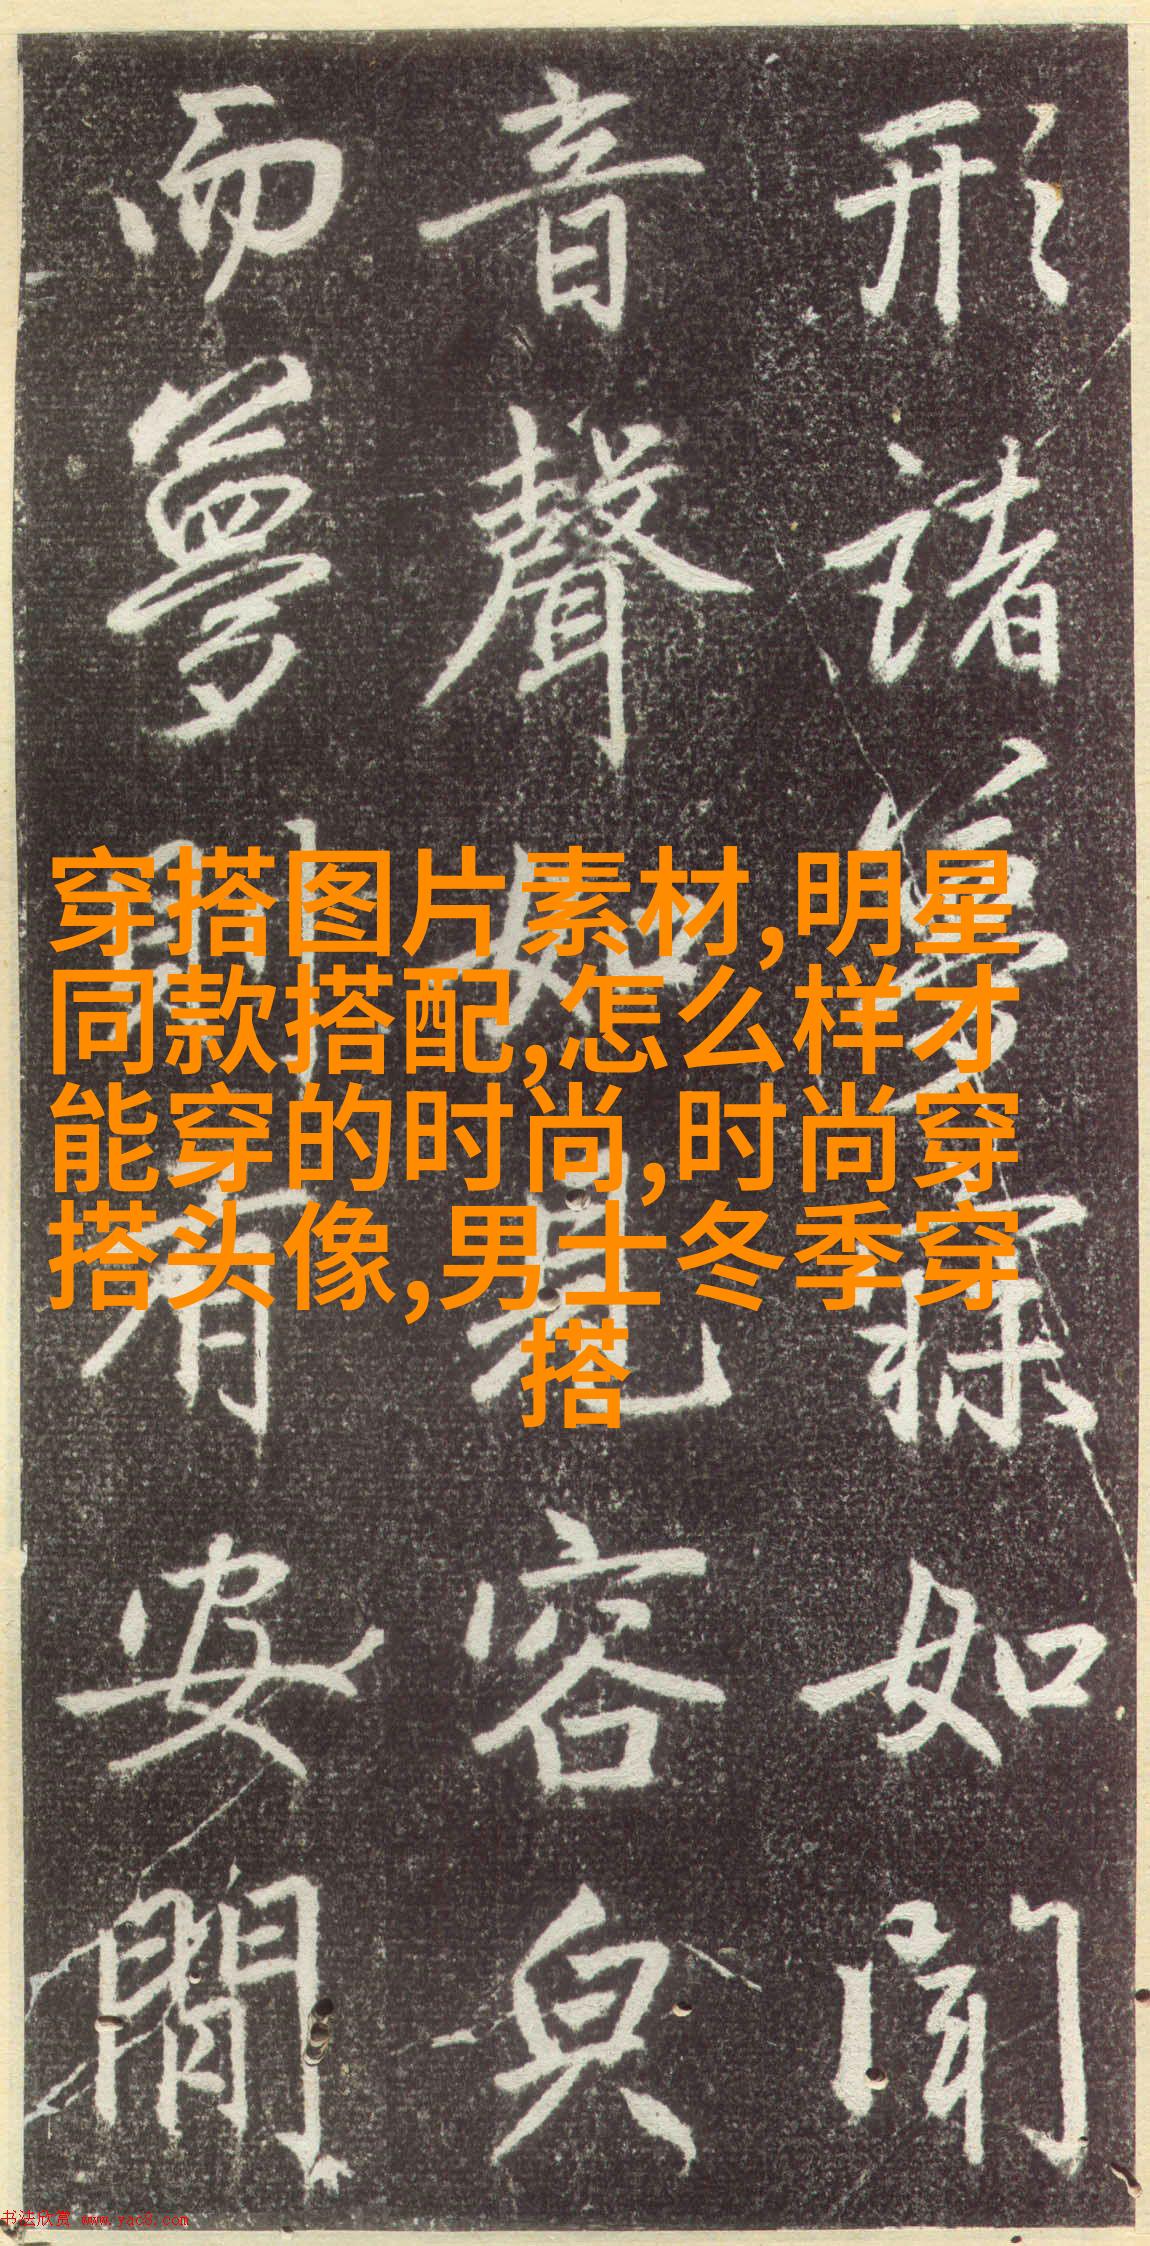 形諸夢寐如聞
音聲如見容皃
而夢則有安閒
穿搭图片素材,明星
同款搭配,怎么样才
能穿的时尚,时尚穿
搭头像,男士冬季穿
搭
书法欣赏 www.yac8.com